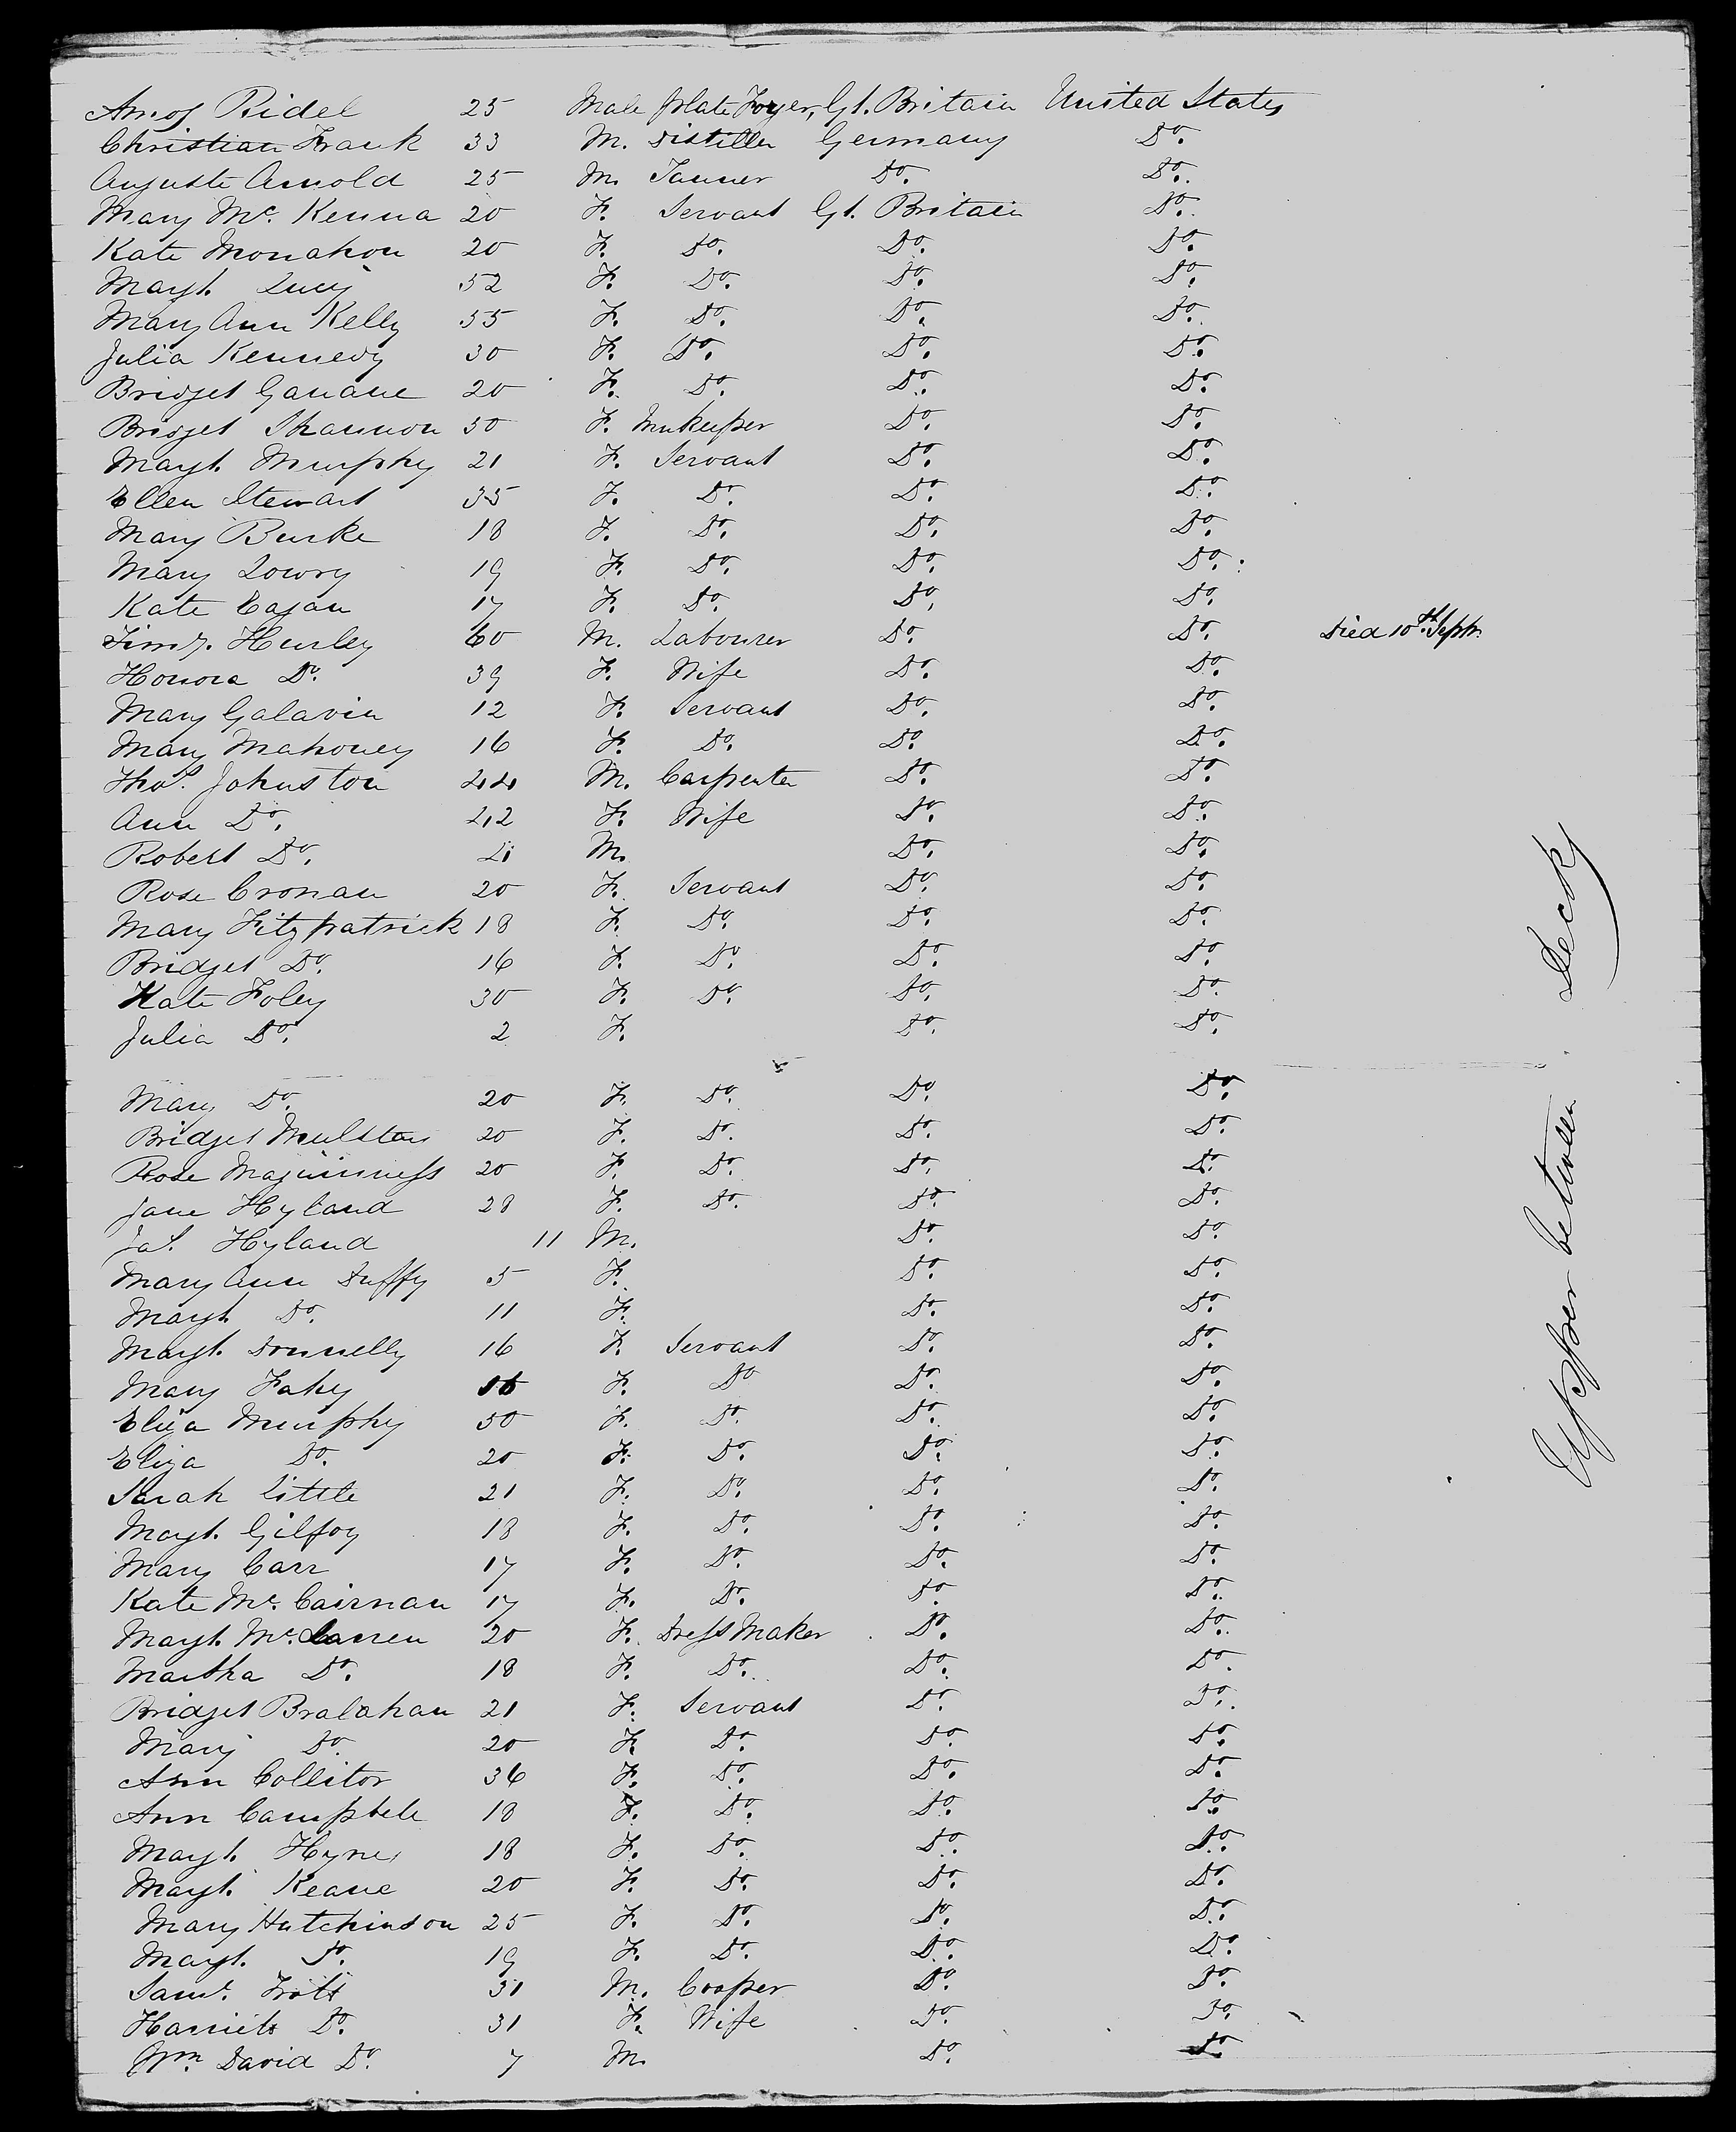 Amos Ridel 25 Male Plate Forger, Gt. Britain United States
Christian Frank 33 M. Distiller Germany Do.
Auguste Arnold 25 M. Tanner Do. Do.
Mary Mc. Kenna 20 F. Servant Gt. Britain Do.
Kate Monahon 20 F. Do. Do. Do.
Margt. Lucy 52 F. Do. Do. Do.
Mary Ann Kelly 35 F. Do. Do. Do.
Julia Kennedy 30 F. Do. Do. Do.
Bridget Ganane 20 F. Do. Do. Do.
Bridget Shannon 50 F. Innkeeper Do. Do.
Margt. Murphy 21 F. Servant Do. Do.
Ellen Stewart 35 F. Do. Do. Do.
Mary Burke 18 F. Do. Do. Do.
Mary Lowry 19 F. Do. Do. Do.
Kate Eagan 17 F. Do. Do. Do.
Timy. Hurley 60 M. Labourer Do. Do. Died 10th Septr.
Honora Do. 39 F. Wife Do. Do.
Mary Galavin 12 F. Servant Do. Do.
Mary Mahoney 16 F. Do. Do. Do.
Thos. Johnston 44 M. Carpenter Do. Do.
Ann Do. 42 F. Wife Do. Do.
Robert Do. 4 M. Do. Do.
Rose Cronan 20 F. Servant Do. Do.
Mary Fitzpatrick 18 F. Do. Do. Do.
Bridget Do. 16 F. Do. Do. Do.
Kate Foley 30 F. Do. Do. Do.
Julia Do. 2 F. Do. Do.
Mary Do. 20 F. Do. Do. Do.
Bridget 20 F. Do. Do. Do.
Rose Maginness 20 F. Do. Do. Do.
Jane Hyland 28 F. Do. Do. Do.
Jas. Hyland 11 M. Do. Do.
Mary Ann Duffy 5 F. Do. Do.
Margt. Do. 11 F. Do. Do.
Margt. Donnelly 16 F. Servant Do. Do.
Mary Fahy 16 F. Do Do. Do.
Eliza Murphy 50 F. Do. Do. Do.
Eliza Do. 20 F. Do. Do. Do.
Sarah Little 21 F. Do. Do. Do.
Margt. Gilfoy 18 F. Do. Do. Do.
Mary Carr 17 F. Do. Do. Do.
Kate Mc. Cairnan 17 F. Do. Do. Do.
Margt. Mc. Larren 20 F. Dress Maker Do. Do.
Martha Do. 18 F. Do. Do. Do.
Bridget Bralahan 21 F. Servant Do. Do.
Mary Do. 20 F. Do. Do. Do.
Ann Collitor 36 F. Do. Do. Do.
Ann Campbele 18 F. Do. Do. Do.
Margt. Hynes 18 F. Do. Do. Do.
Margt. Keane 20 F. Do. Do. Do.
Mary Hutchinson 25 F. Do. Do. Do.
Margt. Do. 19 F. Do. Do. Do.
Saml. Trott 31 M. Cooper Do. Do.
Harriett Do. 31 F. Wife Do. Do.
Wm. David Do. 7 M. Do. Do.
Upper between Decks